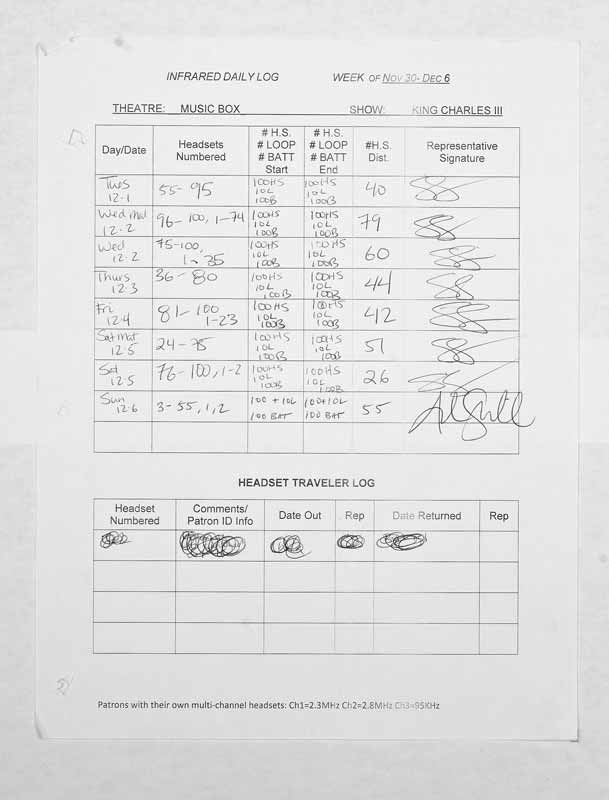 INFRARED DAILY LOG WEEK OF NOV 30- DEC 6
THEATRE: MUSIC BOX SHOW: KING CHARLES III
Day/Date
Headsets
Numbered
# H.S.
# LOOP
# BATT
Start
# H.S.
# LOOP
# BATT
End
#H.S.
Dist.
Representative
Signature
Tues
12.1
55-95
100HS
10L
100B
100HS
10L
100B
40
Wed Mat
12.2
96-100, 1-74
100HS
10L
100B
100HS
10L
100B
79
Wed
12.2
75-100,
1-35
100HS
10L
100B
100HS
10L
100B
60
Thurs
12.3
36-80
100HS
10L
100B
100HS
10L
100B
44
Fri
12.4
81-100
1-23
100HS
10L
100B
100HS
10L
100B
42
Sat Mat
12.5
24-75
100HS
10L
100B
100HS
10L
100B
51
Sat
12.5
76-100, 1-2
100HS
10L
100B
100HS
10L
100B
26
Sun
12.6
3-55, 1, 2
100 + 10L
100 BAT
100+10L
100 BAT
55
HEADSET TRAVELER LOG
Headset
Numbered
Comments/
Patron ID Info
Date Out
Rep
Date Returned
Rep
Patrons with their own multi-channel headsets: Ch1=2.3MHz Ch2=2.8MHz Ch3=95KHz